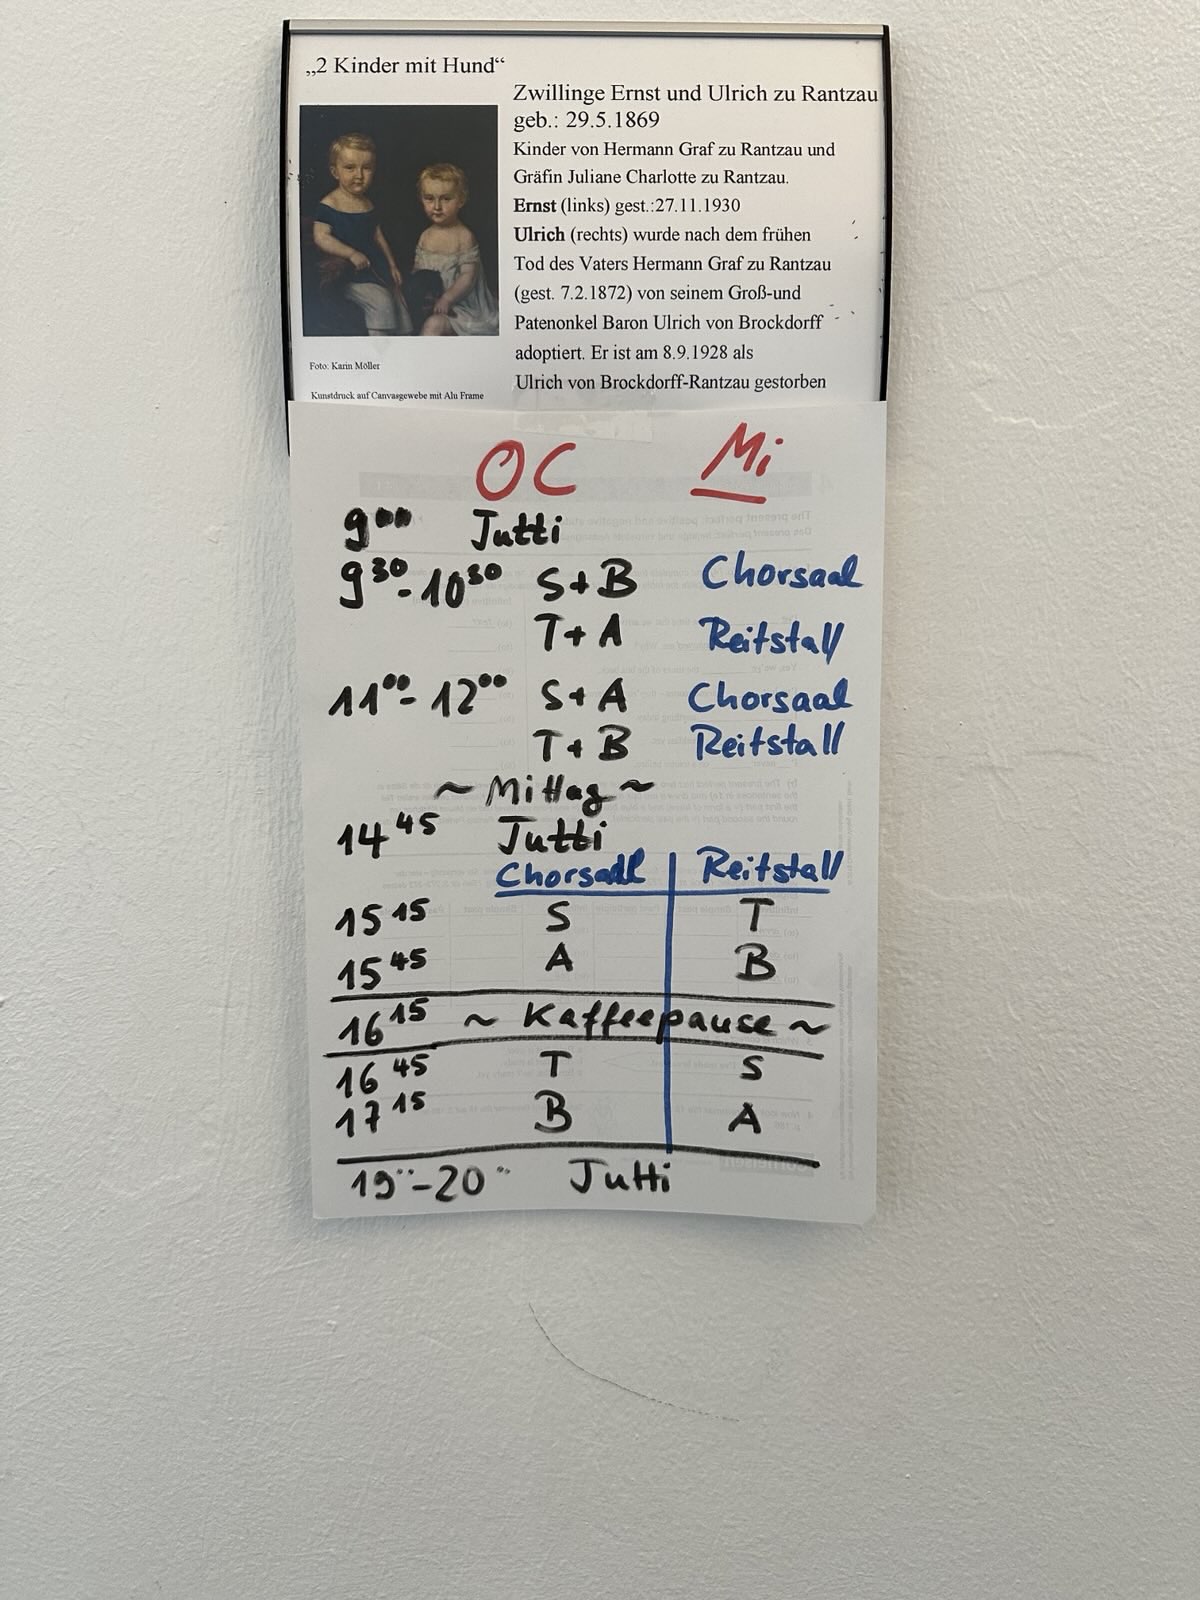 „2 Kinder mit Hund“
Zwillinge Ernst und Ulrich zu Rantzau
geb.: 29.5.1869
Kinder von Hermann Graf zu Rantzau und
Gräfin Juliane Charlotte zu Rantzau.
Ernst (links) gest.:27.11.1930
Ulrich (rechts) wurde nach dem frühen
Tod des Vaters Hermann Graf zu Rantzau
(gest. 7.2.1872) von seinem Groß-und
Patenonkel Baron Ulrich von Brockdorff
adoptiert. Er ist am 8.9.1928 als
Ulrich von Brockdorff-Rantzau gestorben
Foto: Karin Möller
Kunstdruck auf Canvasgewebe mit Alu Frame
OC Mi
9⁰⁰ Jutti
9³⁰-10³⁰ S+B Chorsaal
T+A Reitstall
11⁰⁰-12⁰⁰ S+A Chorsaal
T+B Reitstall
~ Mittag ~
14⁴⁵ Jutti
Chorsaal Reitstall
15¹⁵ S T
15⁴⁵ A B
16¹⁵ ~ Kaffeepause ~
16⁴⁵ T S
17¹⁵ B A
19⁰⁰-20⁰⁰ Jutti